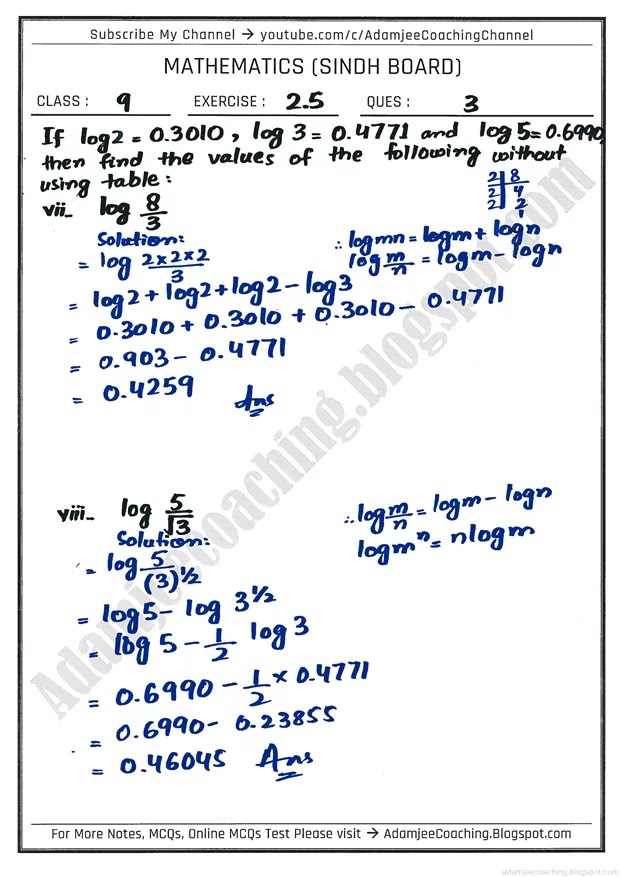 Subscribe My Channel → youtube.com/c/AdamjeeCoachingChannel
MATHEMATICS (SINDH BOARD)
CLASS : 9 EXERCISE : 2.5 QUES : 3
If log2 = 0.3010, log 3 = 0.4771 and log 5 = 0.6990,
then find the values of the following without
using table:
vii_ log 8/3
2 | 8
2 | 4
2 | 2
1
Solution:
= log 2×2×2/3
∴ logmn = logm + logn
log m/n = logm - logn
= log2 + log2 + log2 - log3
= 0.3010 + 0.3010 + 0.3010 - 0.4771
= 0.903 - 0.4771
= 0.4259 Ans
viii_ log 5/√3
∴ log m/n = logm - logn
logmⁿ = nlogm
Solution:
= log 5/(3)^1/2
= log5 - log 3^1/2
= log 5 - 1/2 log 3
= 0.6990 - 1/2 × 0.4771
= 0.6990 - 0.23855
= 0.46045 Ans
Adamjeecoaching.blogspot.com
For More Notes, MCQs, Online MCQs Test Please visit → AdamjeeCoaching.Blogspot.com
adamjeecoaching.blogspot.com